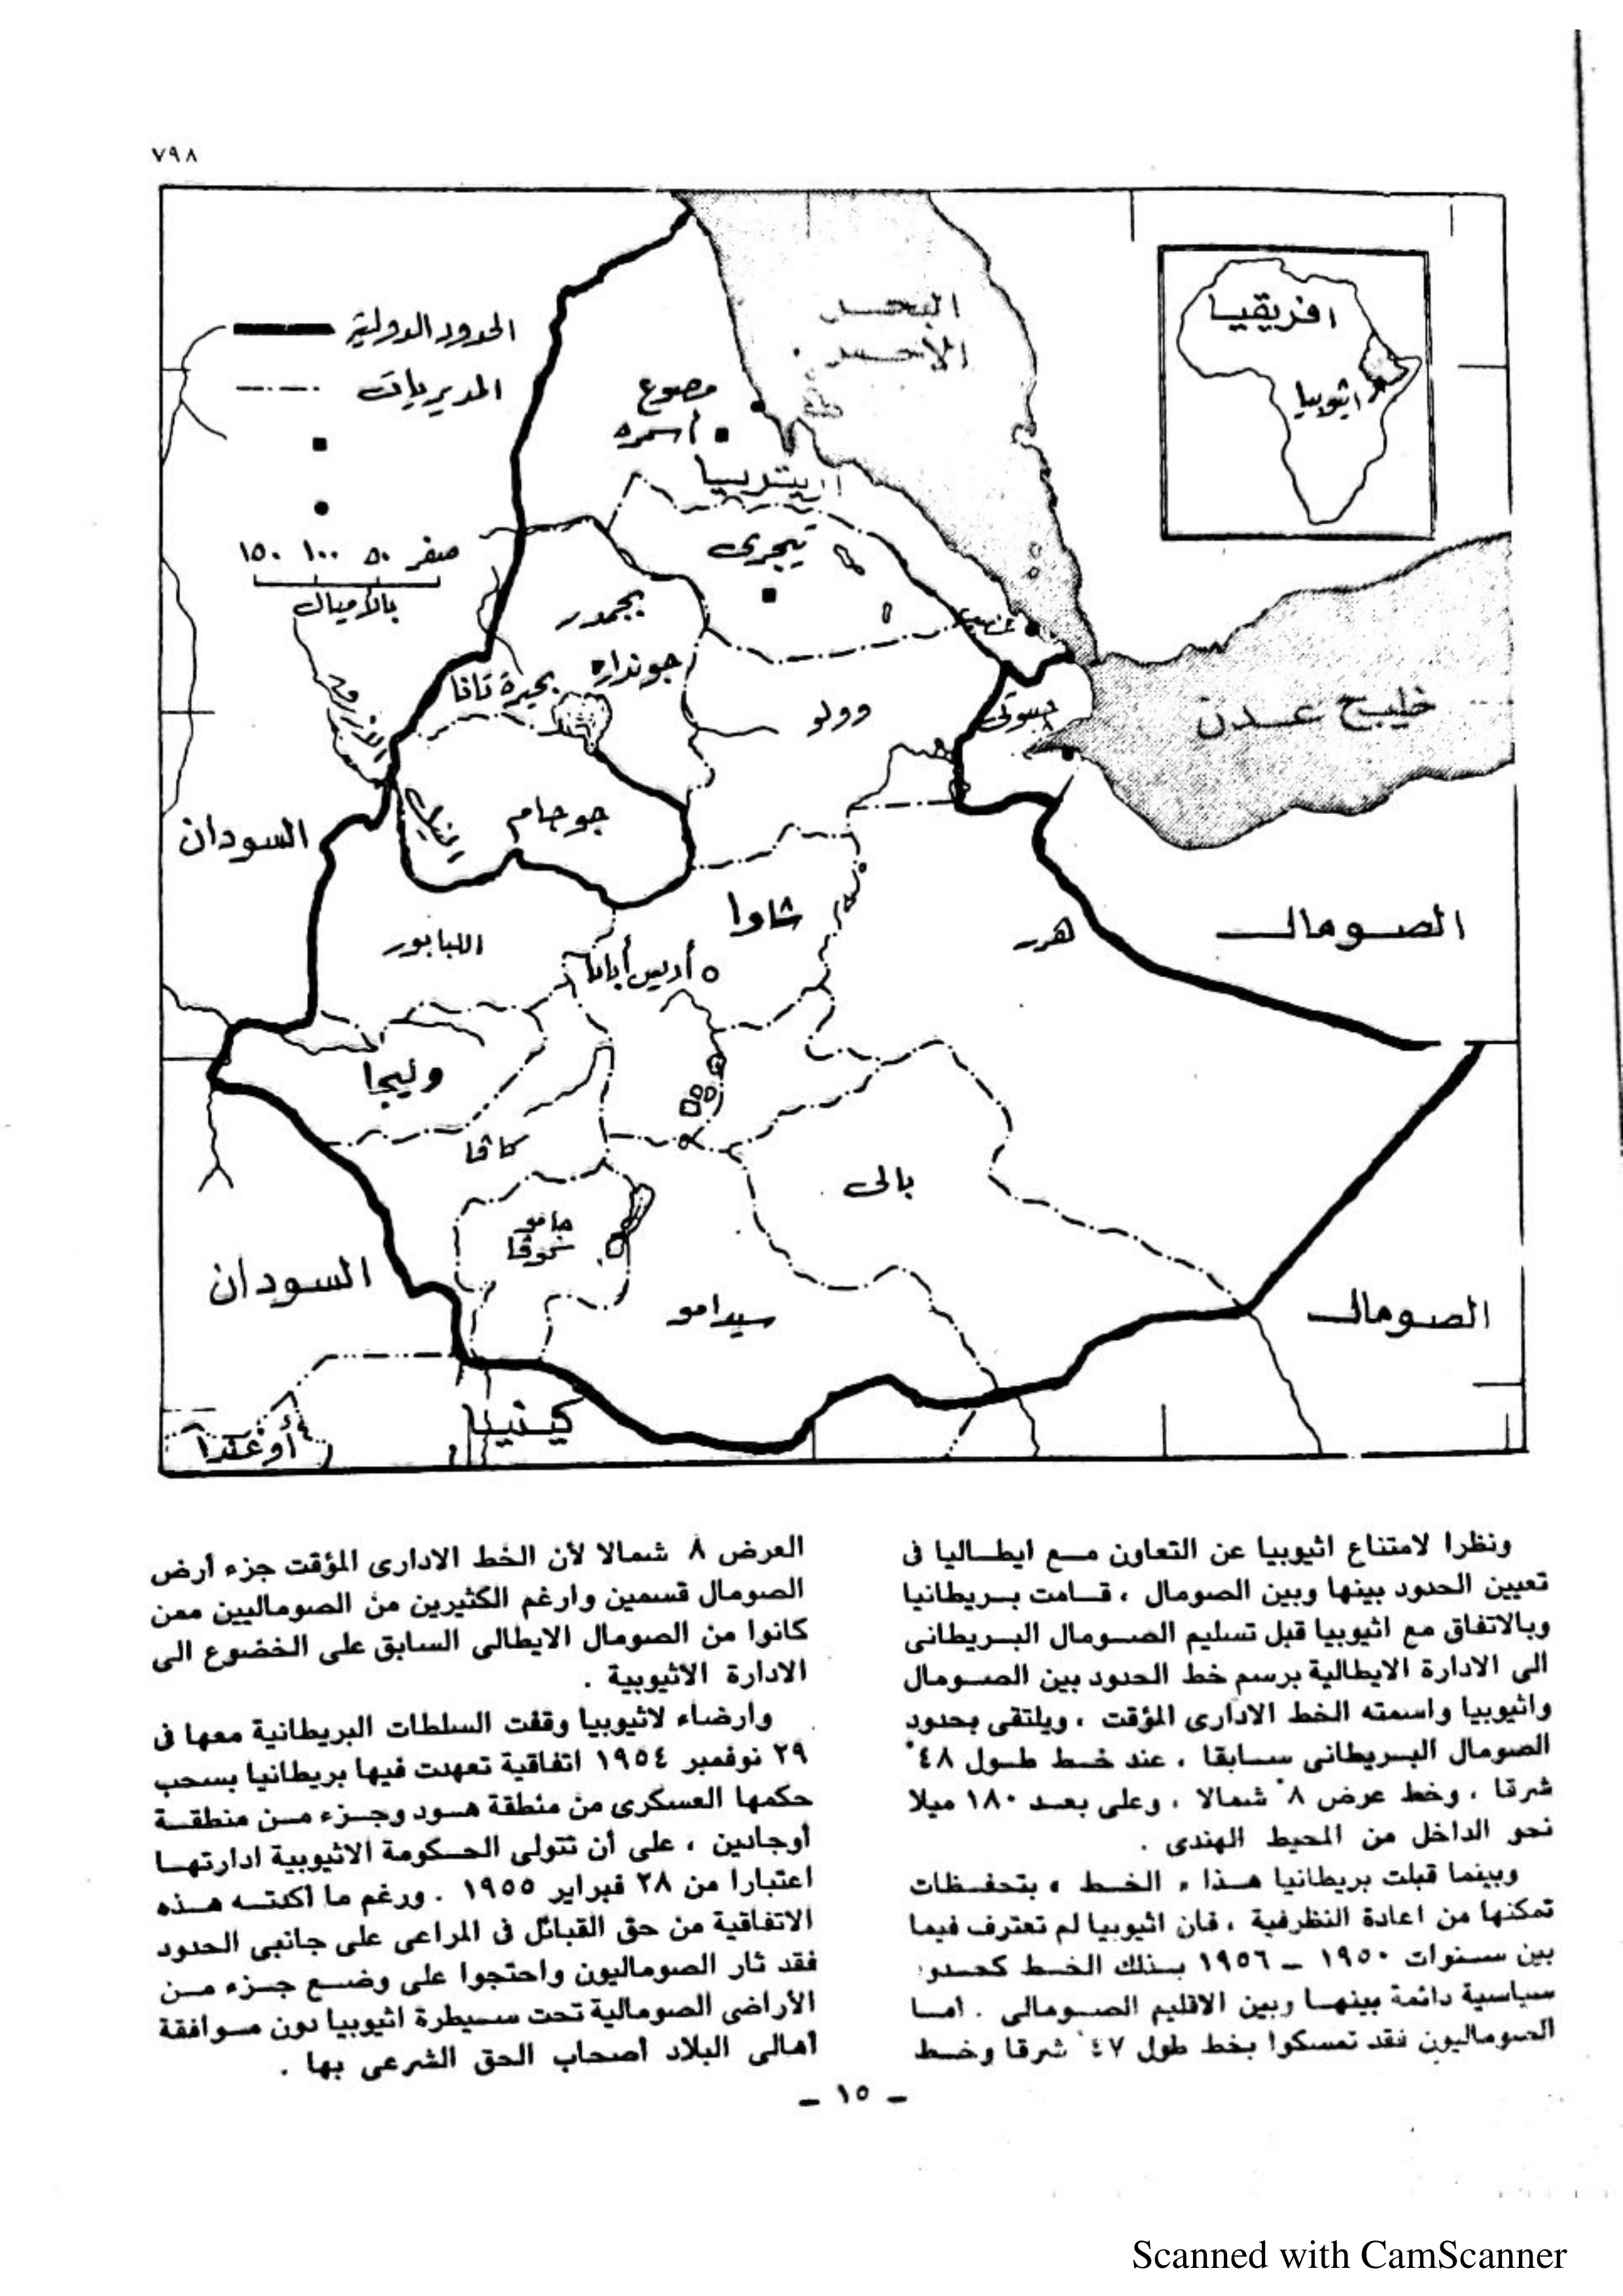 ٧٩٨
البحر
الأحمر
افريقيا
اثيوبيا
الحدود الدولية
المديريات
مصوع
أسمره
اريتريا
تيجرى
صفر ٥٠ ١٠٠ ١٥٠
بالأميال
بجمدر
جونداره
بحيرة تانا
عصب
وولو
جيبوتى
خليج عدن
جوجام
السودان
شاوا
هرر
الصومال
اللبابور
أديس أبابا
وليجا
كافا
بالى
جامو
جوفا
السودان
سيدامو
الصومال
كينيا
أوغندا
ونظرا لامتناع اثيوبيا عن التعاون مع ايطاليا فى
تعيين الحدود بينها وبين الصومال ، قامت بريطانيا
وبالاتفاق مع اثيوبيا قبل تسليم الصومال البريطانى
الى الادارة الايطالية برسم خط الحدود بين الصومال
واثيوبيا واسمته الخط الادارى المؤقت ، ويلتقى بحدود
الصومال البريطانى سابقا ، عند خط طول ٤٨°
شرقا ، وخط عرض ٨° شمالا ، وعلى بعد ١٨٠ ميلا
نحو الداخل من المحيط الهندى .
وبينما قبلت بريطانيا هذا « الخط » بتحفظات
تمكنها من اعادة النظرفية ، فان اثيوبيا لم تعترف فيما
بين سنوات ١٩٥٠ – ١٩٥٦ بذلك الخط كحدود
سياسية دائمة بينها وبين الاقليم الصومالى . أما
الصوماليون فقد تمسكوا بخط طول ٤٧° شرقا وخط
العرض ٨ شمالا لأن الخط الادارى المؤقت جزء أرض
الصومال قسمين وارغم الكثيرين من الصوماليين ممن
كانوا من الصومال الايطالى السابق على الخضوع الى
الادارة الاثيوبية .
وارضاء لاثيوبيا وقفت السلطات البريطانية معها فى
٢٩ نوفمبر ١٩٥٤ اتفاقية تعهدت فيها بريطانيا بسحب
حكمها العسكرى من منطقة هود وجزء من منطقة
أوجادين ، على أن تتولى الحكومة الاثيوبية ادارتها
اعتبارا من ٢٨ فبراير ١٩٥٥ . ورغم ما أكدته هذه
الاتفاقية من حق القبائل فى المراعى على جانبى الحدود
فقد ثار الصوماليون واحتجوا على وضع جزء من
الأراضى الصومالية تحت سيطرة اثيوبيا دون موافقة
أهالى البلاد أصحاب الحق الشرعى بها .
– ١٥ –
Scanned with CamScanner